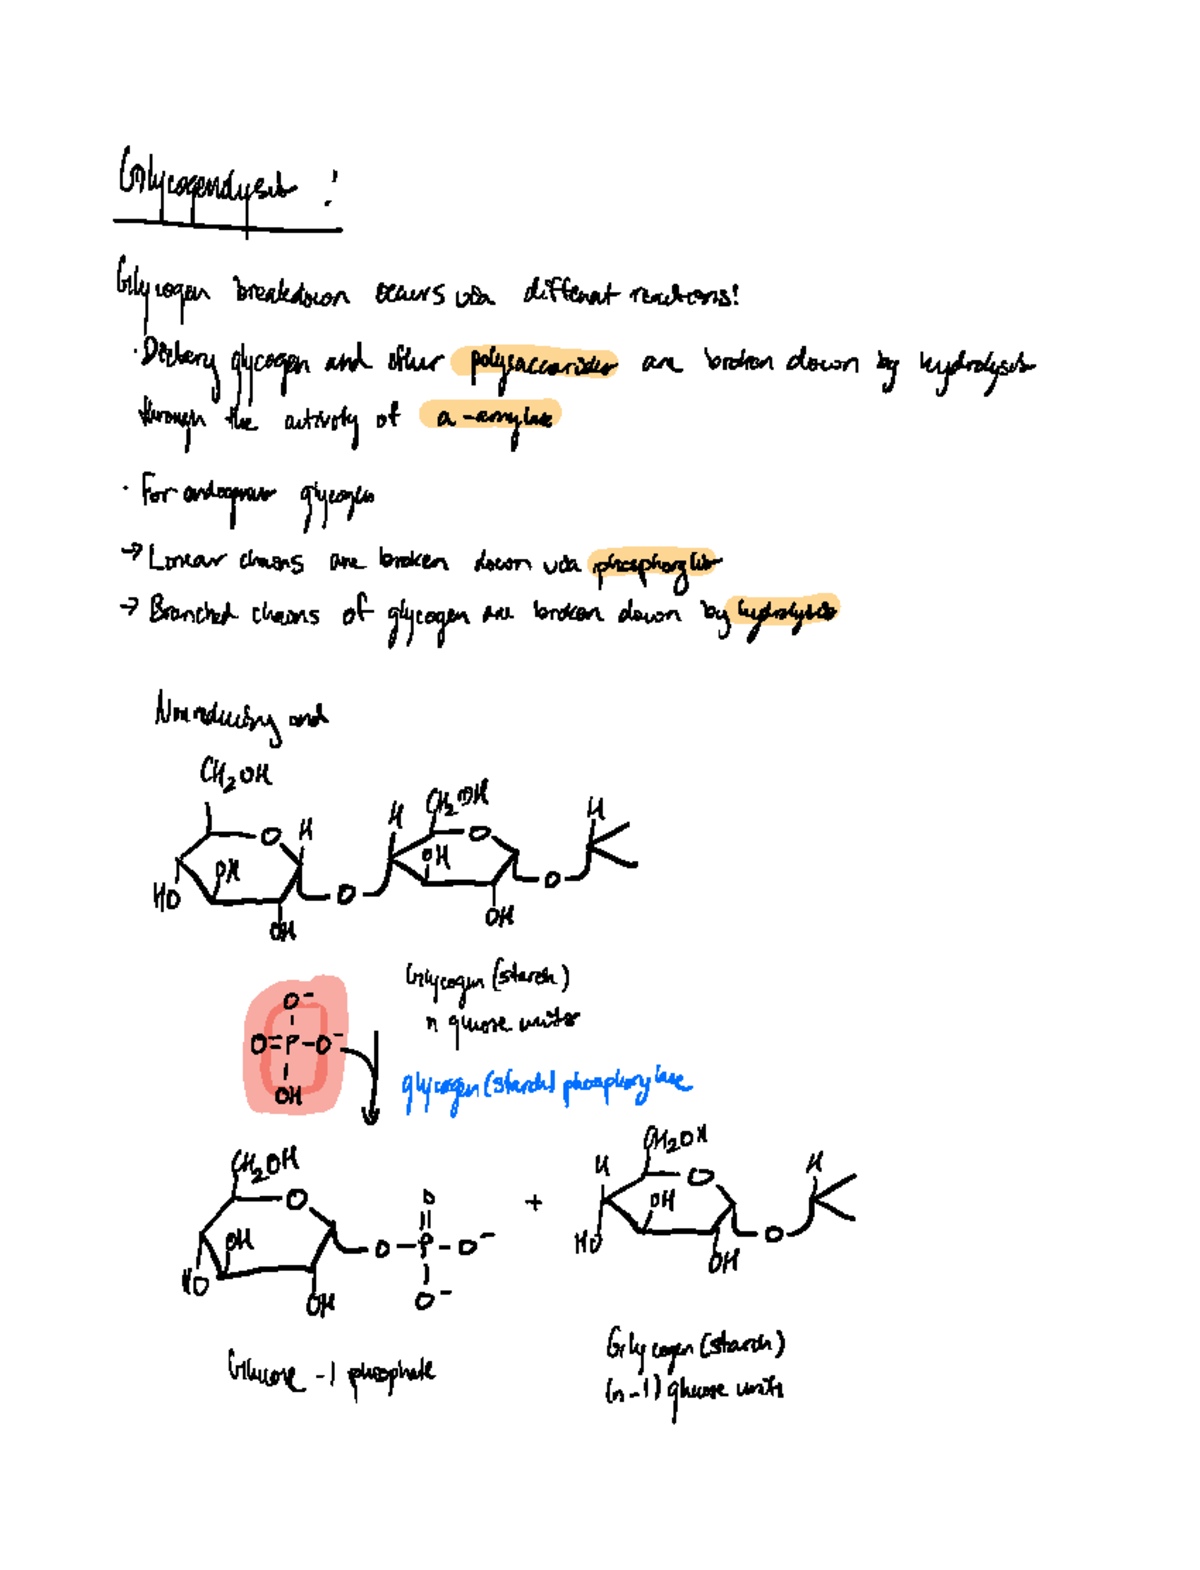 Glycogenolysis :
Glycogen breakdown occurs via different reactions!
· Dietary glycogen and other polysaccarides are broken down by hydrolysis
through the activity of a-amylase
· For endogenous glycogen
→ Linear chains are broken down via phosphorylisis
→ Branched chains of glycogen are broken down by hydrolysis
Nonreducing end
CH2OH
CH2OH
H
H
H
O
O
OH
OH
HO
O
O
OH
OH
Glycogen (starch)
n glucose units
O-
O=P-O-
OH
glycogen (starch) phosphorylase
CH2OH
CH2OH
H
H
O
O
O
+
OH
OH
O-P-O-
HO
HO
O
OH
OH
O-
Glucose -1 phosphate
Glycogen (starch)
(n-1) glucose units